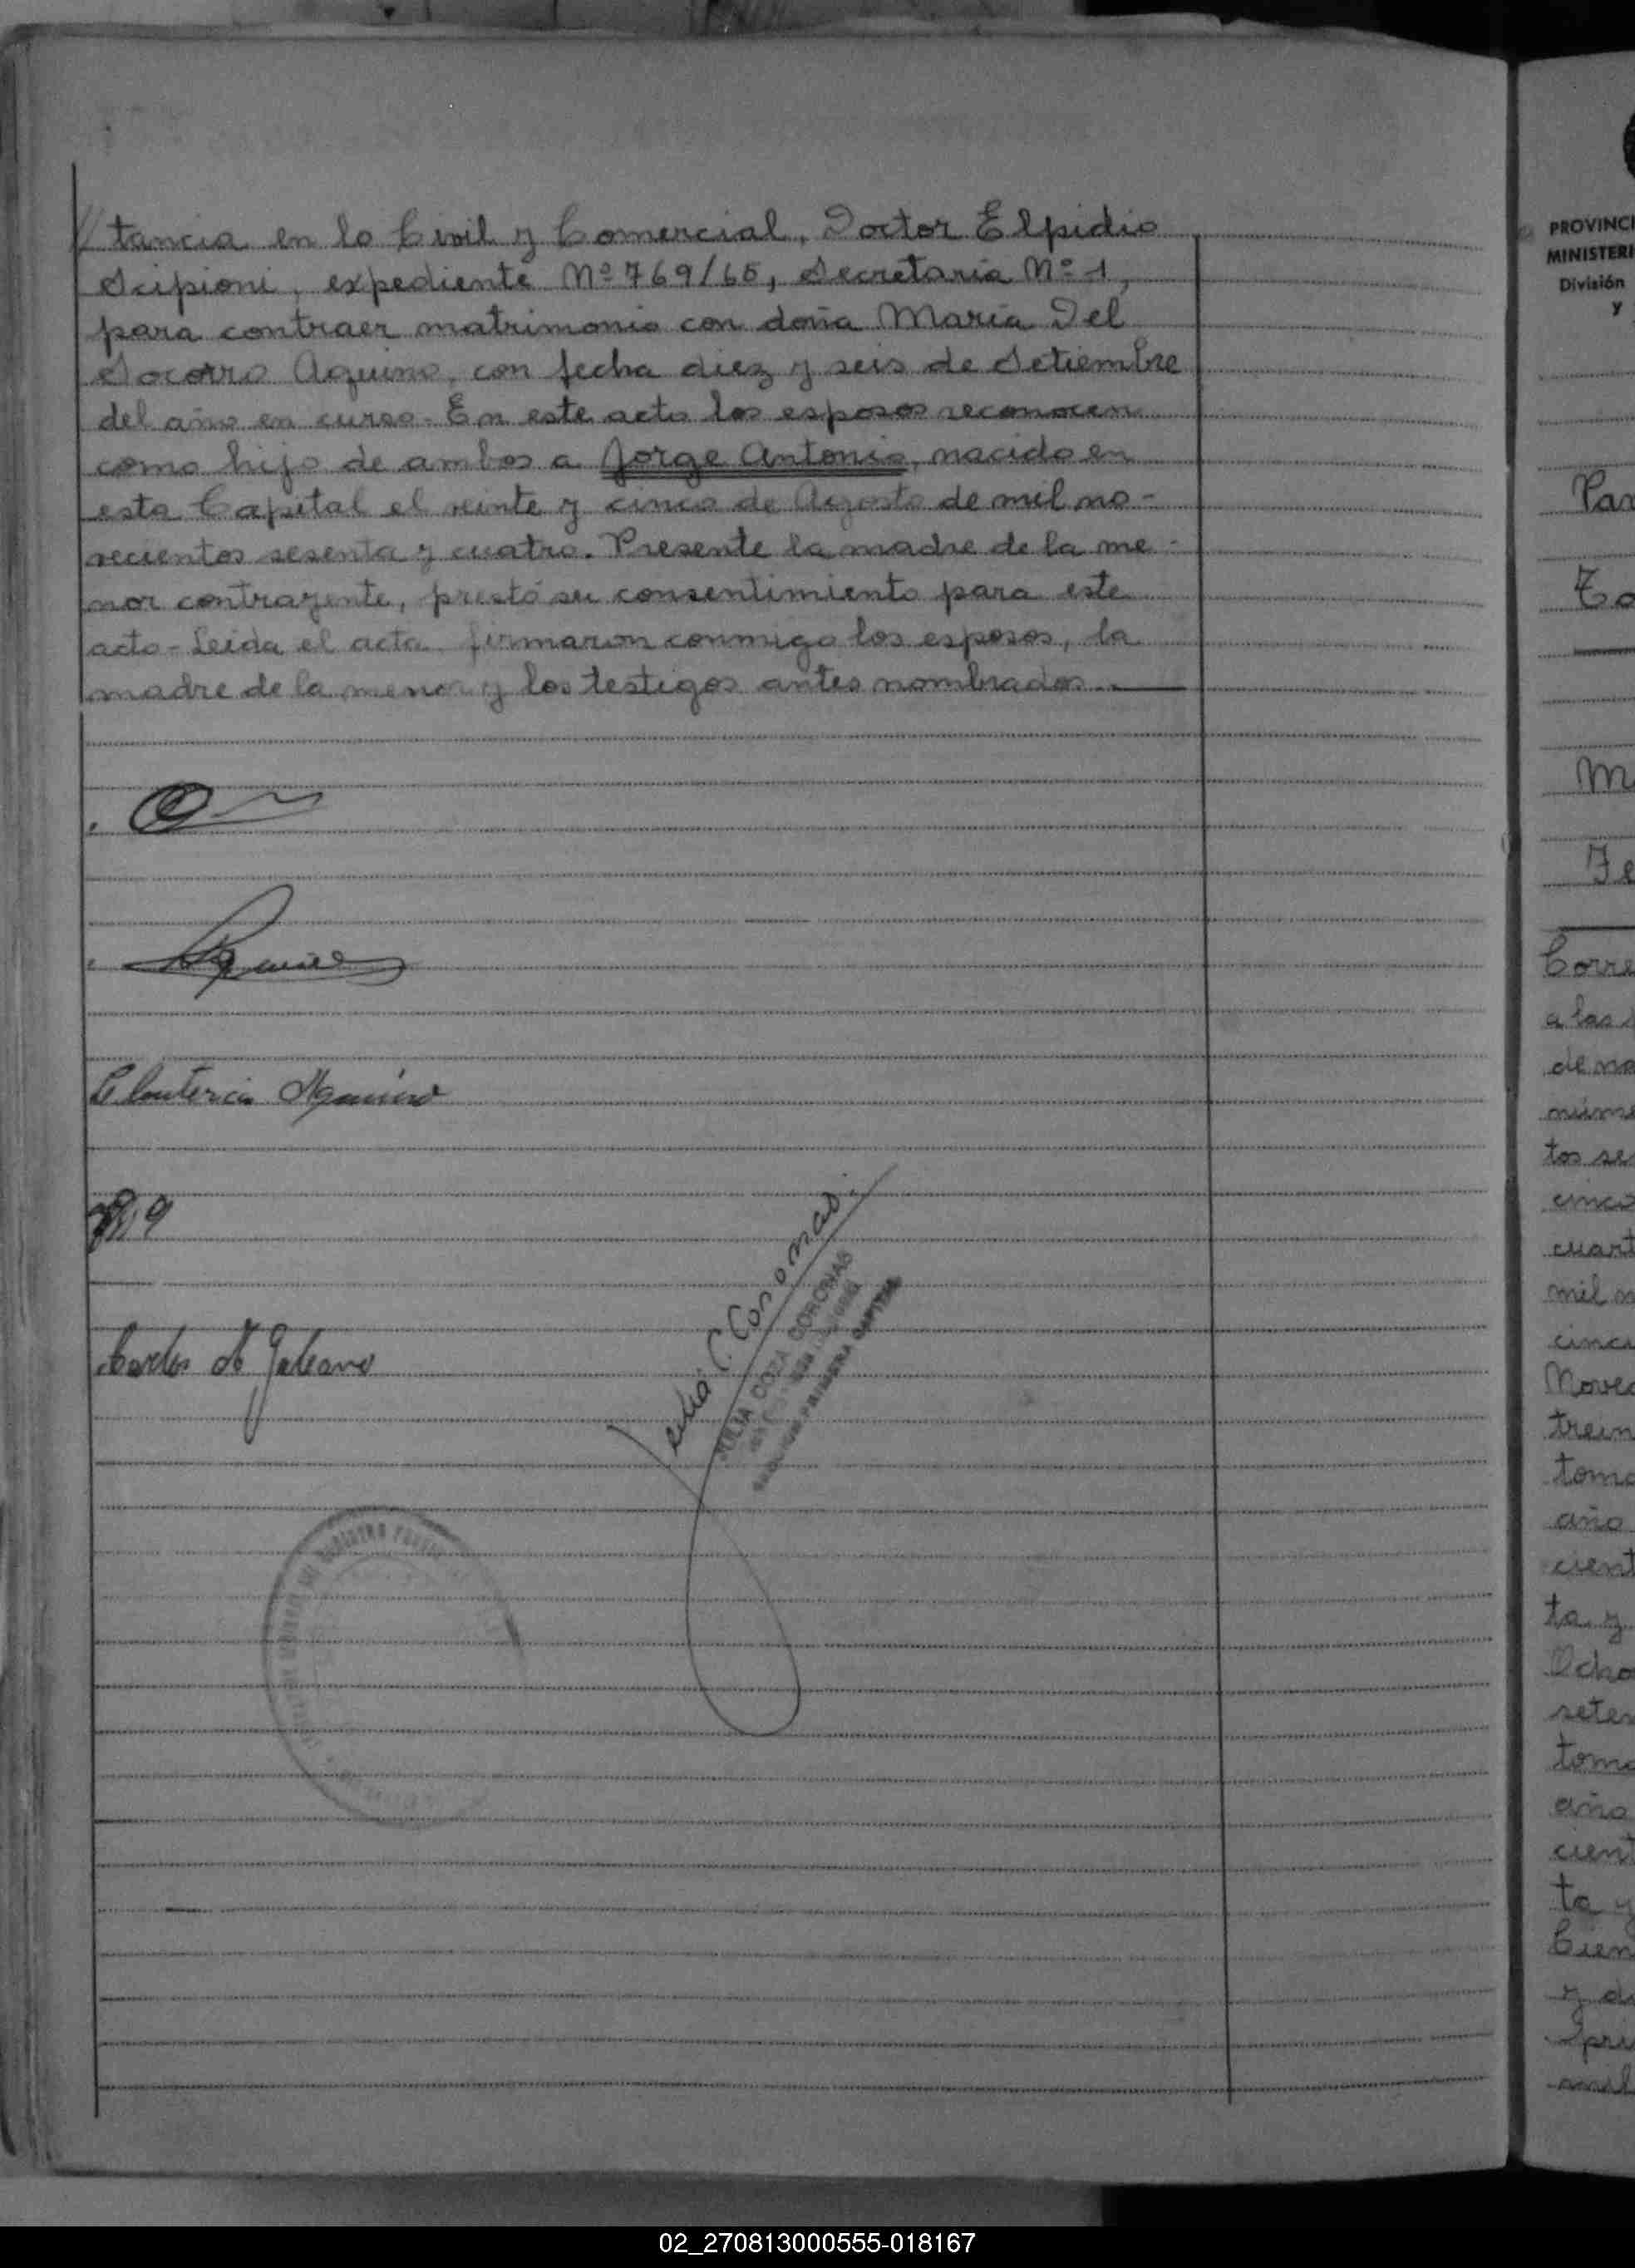 tancia en lo Civil y Comercial, Doctor Elpidio
Scipioni, expediente Nº 769/65, Secretaria Nº 1,
para contraer matrimonio con doña Maria Del
Socorro Aquino, con fecha diez y seis de Setiembre
del año en curso. En este acto los esposos reconocen
como hijo de ambos a Jorge Antonio, nacido en
esta Capital el veinte y cinco de Agosto de mil no-
vecientos sesenta y cuatro. Presente la madre de la me-
nor contrayente, prestó su consentimiento para este
acto - Leida el acta firmaron conmigo los esposos, la
madre de la menor y los testigos antes nombrados.
Aquino
Carlos A Galeano
Julia C. Coronas
JULIA COZA CORONAS
PRIMERA CAPITAL
REGISTRO
PROVINCI
MINISTERI
División
y
Par
To
Ma
Fe
Corre
a las
de no
núme
tos se
cinco
cuart
mil n
cincu
Nove
trein
tomo
año
cient
ta y
Ocho
seten
tomo
año
cient
ta y
Cien
y d
mil
02_270813000555-018167